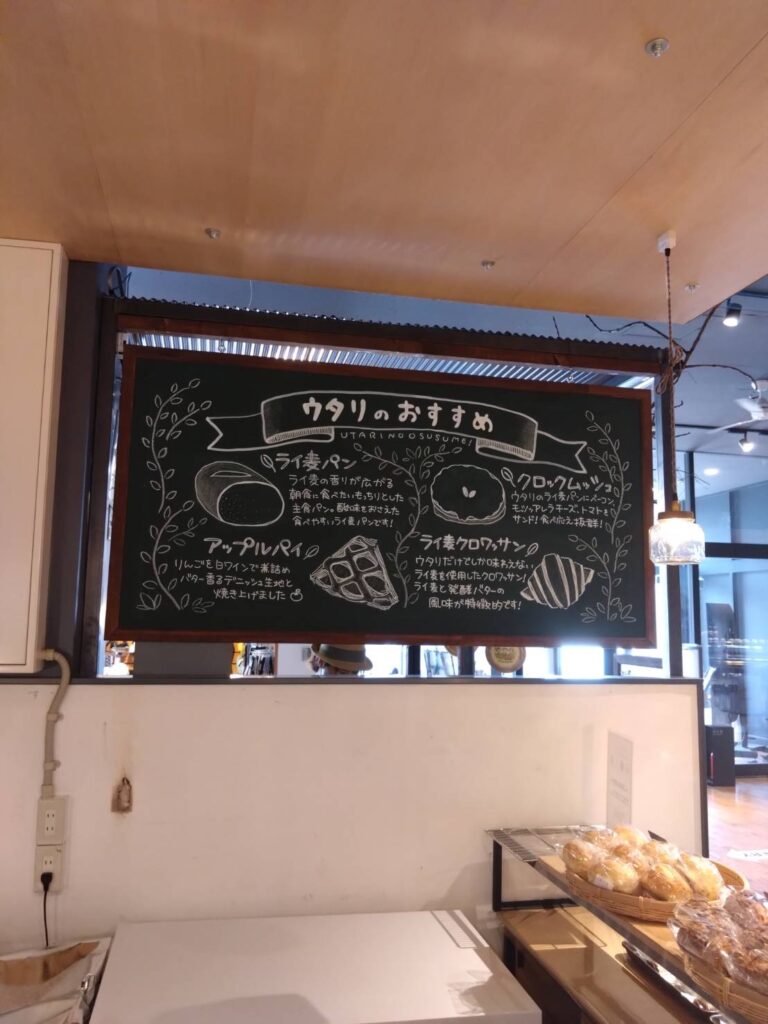 ウタリのおすすめ
UTARI NO OSUSUME!
ライ麦パン
ライ麦の香りが広がる
朝食に食べたいもっちりとした
主食パン。酸味をおさえた
食べやすいライ麦パンです!
クロックムッシュ
ウタリのライ麦パンにベーコン
モッツァレラチーズ、トマトを
サンド!食べ応え抜群!
アップルパイ
りんごを白ワインで煮詰め
バター香るデニッシュ生地と
焼き上げました
ライ麦クロワッサン
ウタリだけでしか味わえない
ライ麦を使用したクロワッサン!
ライ麦と発酵バターの
風味が特徴的です!